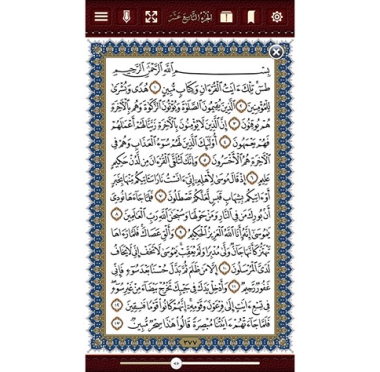 الجزء التاسع عشر
بِسْمِ اللَّهِ الرَّحْمَٰنِ الرَّحِيمِ
طسٓ تِلْكَ ءَايَٰتُ الْقُرْءَانِ وَكِتَابٍ مُّبِينٍ ١ هُدًى وَبُشْرَىٰ
لِلْمُؤْمِنِينَ ٢ الَّذِينَ يُقِيمُونَ الصَّلَوٰةَ وَيُؤْتُونَ الزَّكَوٰةَ وَهُم بِالْءَاخِرَةِ
هُمْ يُوقِنُونَ ٣ إِنَّ الَّذِينَ لَا يُؤْمِنُونَ بِالْءَاخِرَةِ زَيَّنَّا لَهُمْ أَعْمَٰلَهُمْ
فَهُمْ يَعْمَهُونَ ٤ أُو۟لَٰٓئِكَ الَّذِينَ لَهُمْ سُوٓءُ الْعَذَابِ وَهُمْ فِي
الْءَاخِرَةِ هُمُ الْأَخْسَرُونَ ٥ وَإِنَّكَ لَتُلَقَّى الْقُرْءَانَ مِن لَّدُنْ حَكِيمٍ
عَلِيمٍ ٦ إِذْ قَالَ مُوسَىٰ لِأَهْلِهِۦٓ إِنِّيٓ ءَانَسْتُ نَارًا سَـَٔاتِيكُم مِّنْهَا بِخَبَرٍ
أَوْ ءَاتِيكُم بِشِهَابٍ قَبَسٍ لَّعَلَّكُمْ تَصْطَلُونَ ٧ فَلَمَّا جَآءَهَا نُودِيَ
أَنۢ بُورِكَ مَن فِي النَّارِ وَمَنْ حَوْلَهَا وَسُبْحَٰنَ اللَّهِ رَبِّ الْعَٰلَمِينَ ٨
يَٰمُوسَىٰٓ إِنَّهُۥٓ أَنَا اللَّهُ الْعَزِيزُ الْحَكِيمُ ٩ وَأَلْقِ عَصَاكَ فَلَمَّا رَءَاهَا
تَهْتَزُّ كَأَنَّهَا جَآنٌّ وَلَّىٰ مُدْبِرًا وَلَمْ يُعَقِّبْ يَٰمُوسَىٰ لَا تَخَفْ إِنِّي لَا يَخَافُ
لَدَيَّ الْمُرْسَلُونَ ١٠ إِلَّا مَن ظَلَمَ ثُمَّ بَدَّلَ حُسْنًۢا بَعْدَ سُوٓءٍ فَإِنِّي
غَفُورٌ رَّحِيمٌ ١١ وَأَدْخِلْ يَدَكَ فِي جَيْبِكَ تَخْرُجْ بَيْضَآءَ مِنْ غَيْرِ سُوٓءٍ
فِي تِسْعِ ءَايَٰتٍ إِلَىٰ فِرْعَوْنَ وَقَوْمِهِۦٓ إِنَّهُمْ كَانُوا۟ قَوْمًا فَٰسِقِينَ ١٢
فَلَمَّا جَآءَتْهُمْ ءَايَٰتُنَا مُبْصِرَةً قَالُوا۟ هَٰذَا سِحْرٌ مُّبِينٌ ١٣
٣٧٧